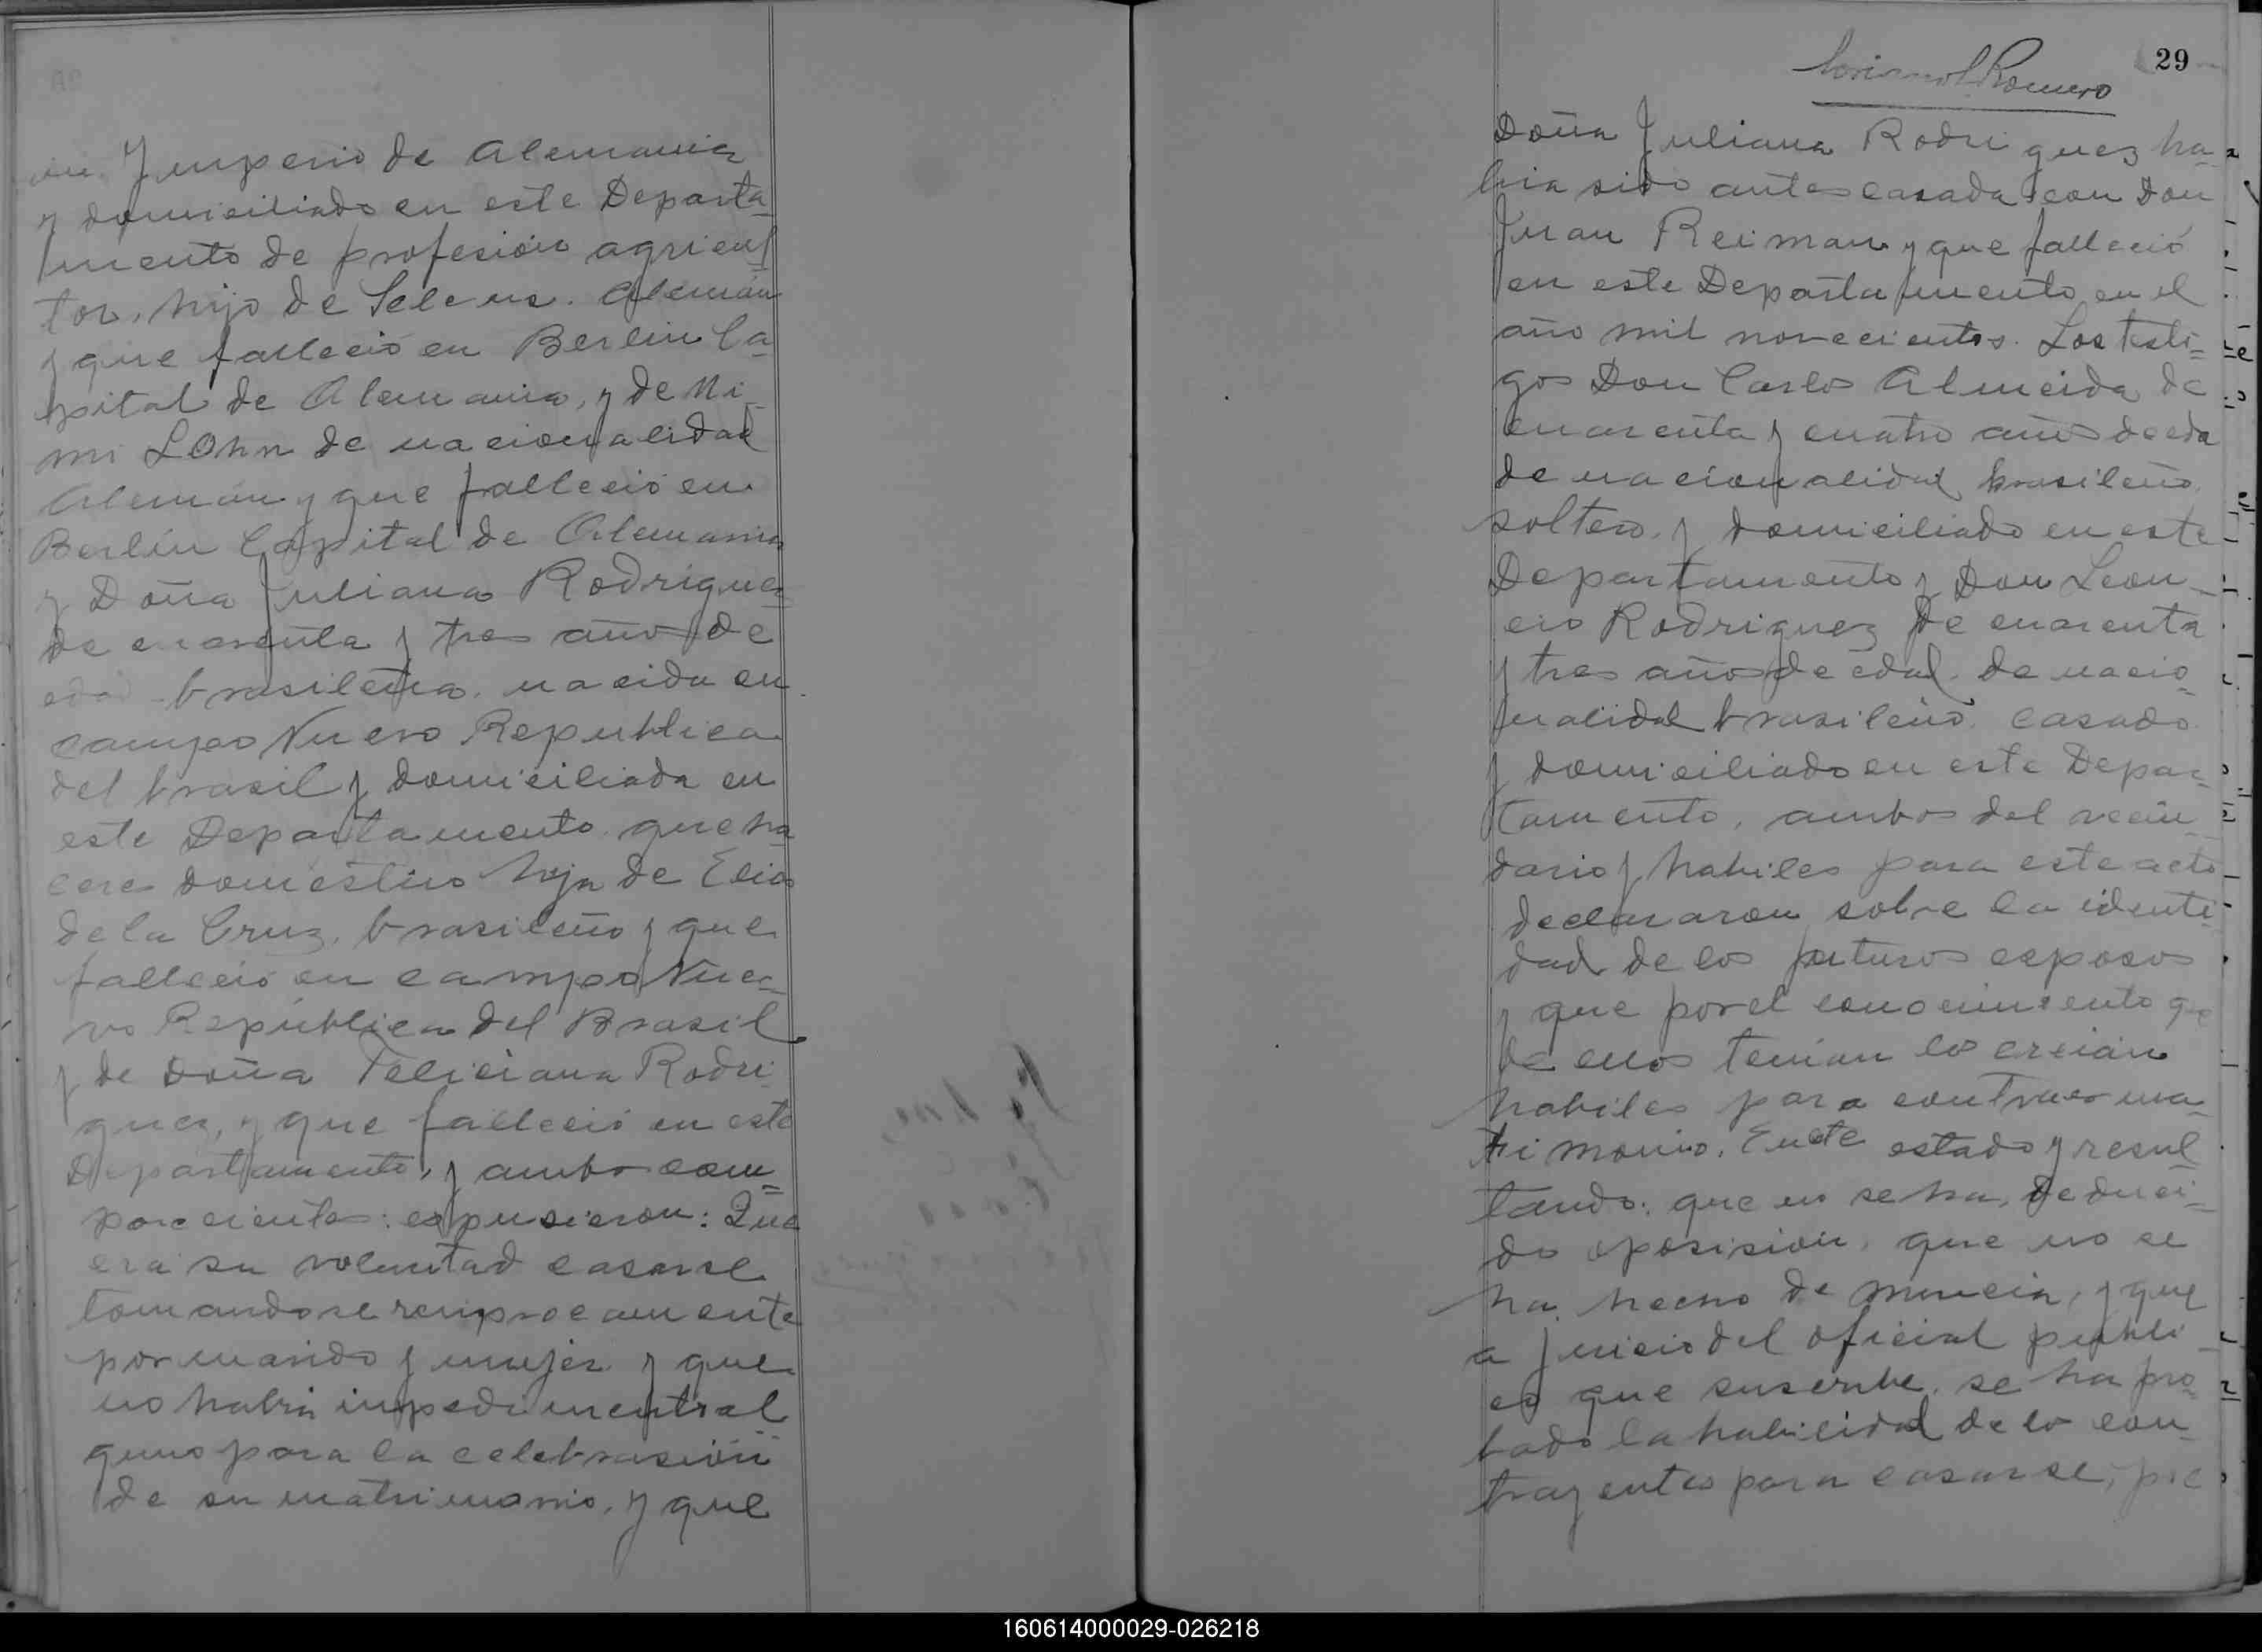 Imperio de Alemania
y domiciliado en este Departa-
mento de profesión agricul-
tor, hijo de Seleus. Alemán
y que falleció en Berlin Ca-
pital de Alemania, y de Mi-
mi LOhn de nacionalidad
Alemán y que falleció en
Berlín Capital de Alemania
y Doña Juliana Rodrigues
de cuarenta y tres años de
edad brasileña. nacida en
campo Nuevo Republica
del brasil y domiciliada en
este Departamento. queha
cere domestico hija de Elias
de la Cruz, brasileño y que
falleció en campo Nue-
vo República del Brasil
y de Doña Feliciana Rodri
guez, y que falleció en este
Departamento, y ambos com-
parecientes: expusieron: Que
era su voluntad casarse
tomandose reciprocamente
por marido y mujer y que
no habia impedimento al
guno para la celebrasión
de su matrimonio, y que
29
Romero
Doña Juliana Rodriguez ha-
bia sido antes casada con Don
Juan Reiman y que falleció
en este Departamento en el
año mil novecientos. Los testi-
gos Don Carlos Almeida de
cuarenta y cuatro años de eda
de nacionalidad brasileño.
soltero, y domiciliado en este
Departamento y Don Leon-
cio Rodriguez de cuarenta
y tres años de edad. de nacio-
nalidad brasileño. casado
y domiciliado en este Depar-
tamento, ambos del vecin-
dario y habiles para este acto
declararon sobre la identi-
dad de los futuros esposos
y que por el conocimiento que
de ellos tenian los creian
habiles para contraer ma-
trimonio. En este estado y resul-
tando: que no se ha deduci-
do oposision, que no se
ha hecho denuncia, y que
a juicio del oficial publi-
co que suscribe. se ha pro-
bado la habilidad de lo con-
trayentes para casarse,
160614000029-026218